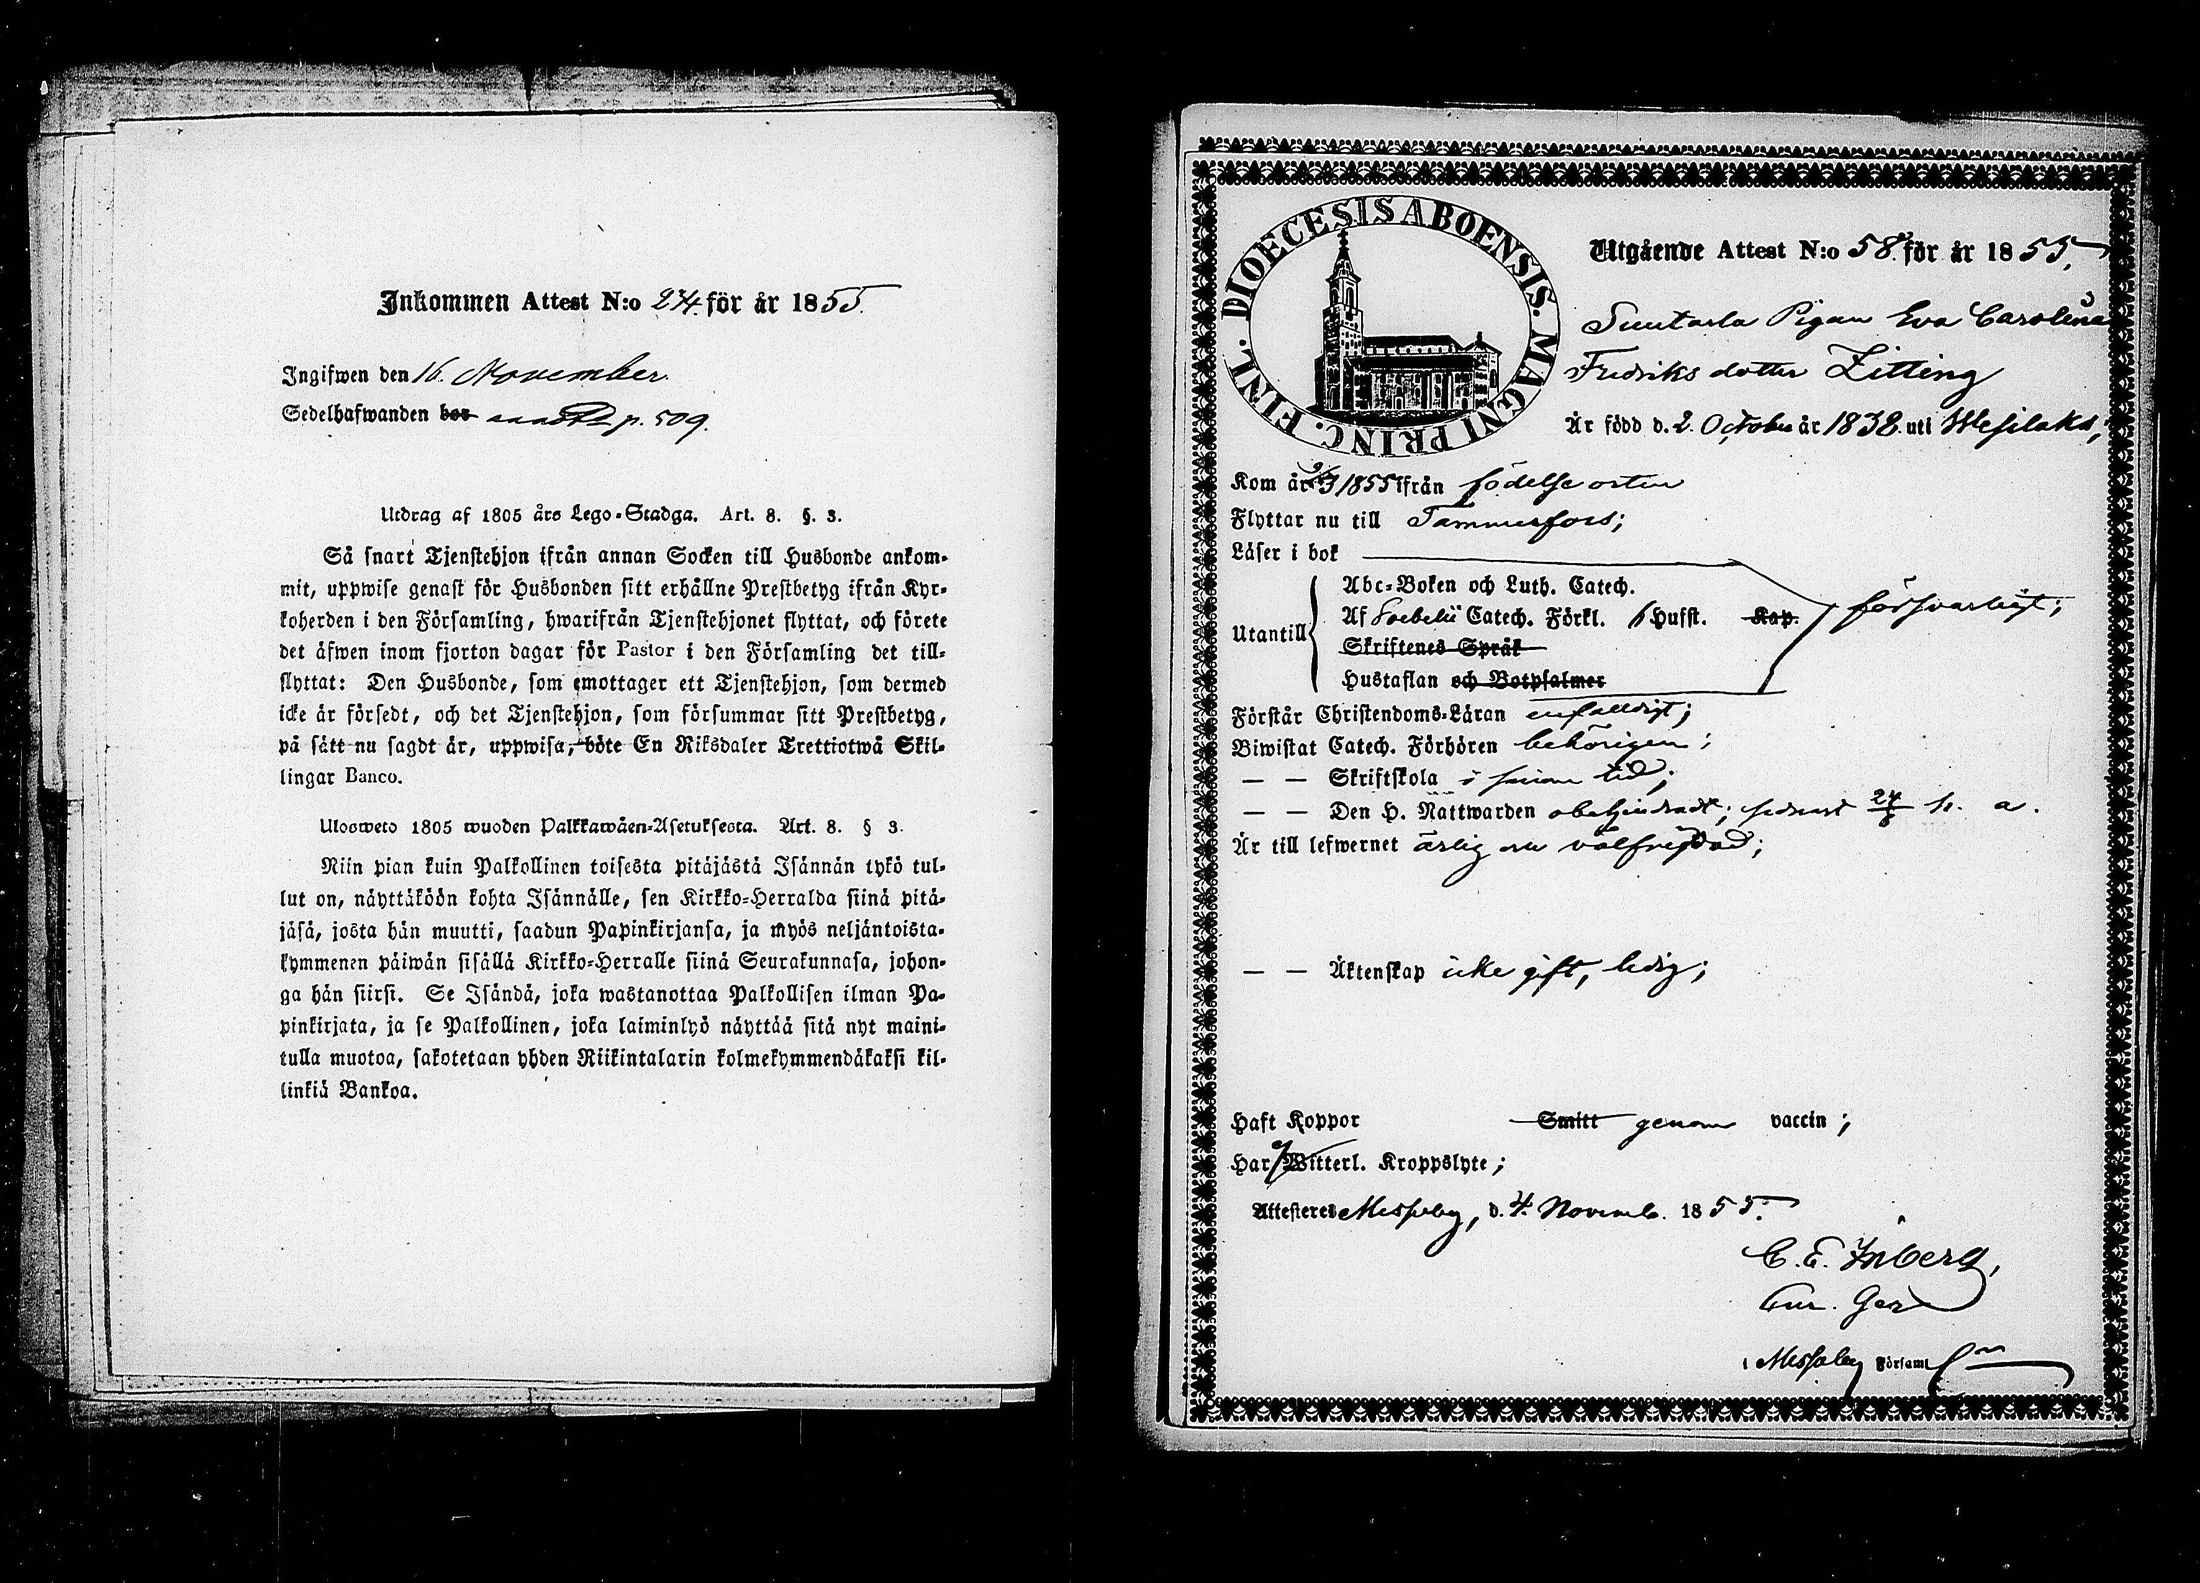 Inkommen Attest N:o 24. för år 1855.
Ingifwen den 16. November.
Sedelhafwanden bor p. 509.
Utdrag af 1805 års Lego-Stadga. Art. 8. §. 3.
Så snart Tjenstehjon ifrån annan Socken till Husbonde ankom-
mit, uppwise genast för Husbonden sitt erhållne Prestbetyg ifrån Kyr-
koherden i den Församling, hwarifrån Tjenstehjonet flyttat, och förete
det äfwen inom fjorton dagar för Pastor i den Församling det till-
flyttat: Den Husbonde, som emottager ett Tjenstehjon, som dermed
icke är försedt, och det Tjenstehjon, som försummar sitt Prestbetyg,
på sätt nu sagdt är, uppwisa, böte En Riksdaler Trettiotwå Skil-
lingar Banco.
Ulosweto 1805 wuoden Palkkawäen-Asetuksesta. Art. 8. § 3.
Niin pian kuin Palkollinen toisesta pitäjästä Isännän tykö tul-
lut on, näyttäköön kohta Isännälle, sen Kirkko-Herralda siinä pitä-
jäsä, josta hän muutti, saadun Papinkirjansa, ja myös neljäntoista-
kymmenen päiwän sisällä Kirkko-Herralle siinä Seurakunnasa, johon-
ga hän siirsi. Se Isändä, joka wastanottaa Palkollisen ilman Pa-
pinkirjata, ja se Palkollinen, joka laiminlyö näyttää sitä nyt maini-
tulla muotoa, sakotetaan yhden Riikintalarin kolmekymmendäkaksi kil-
linkiä Bankoa.
DIOECESIS ABOENSIS. MAGNI PRINC. FINL.
Utgående Attest N:o 58. för år 1855.
Pigan Eva Carolina
Fredriksdotter Zitting
Är född d. 2. October år 1838. uti Wesilaks,
Kom år 1855 ifrån födelseorten
Flyttar nu till Tammerfors;
Läser i bok
Utantill
Abc-Boken och Luth. Catech.
Af Soebelii Catech. Förkl. 6 Hufst. Kap.
försvarligt;
Skriftenes Språk
Hustaflan och Botpsalmer
Förstår Christendoms-Läran enfalldigt;
Biwistat Catech. Förhören behörigen;
— — Skriftskola i sinom tid;
— — Den H. Nattwarden obehindradt; sednast 24/6 h. a.
Är till lefwernet ärlig och välfrejdad;
— — Äktenskap icke gift, ledig;
Haft Koppor Smitt genom vaccin;
Har ej Witterl. Kroppslyte;
Attesteres Messuby, d. 4. Novemb. 1855.
C. E. Inberg,
Cur. Ger
i Messuby Församl